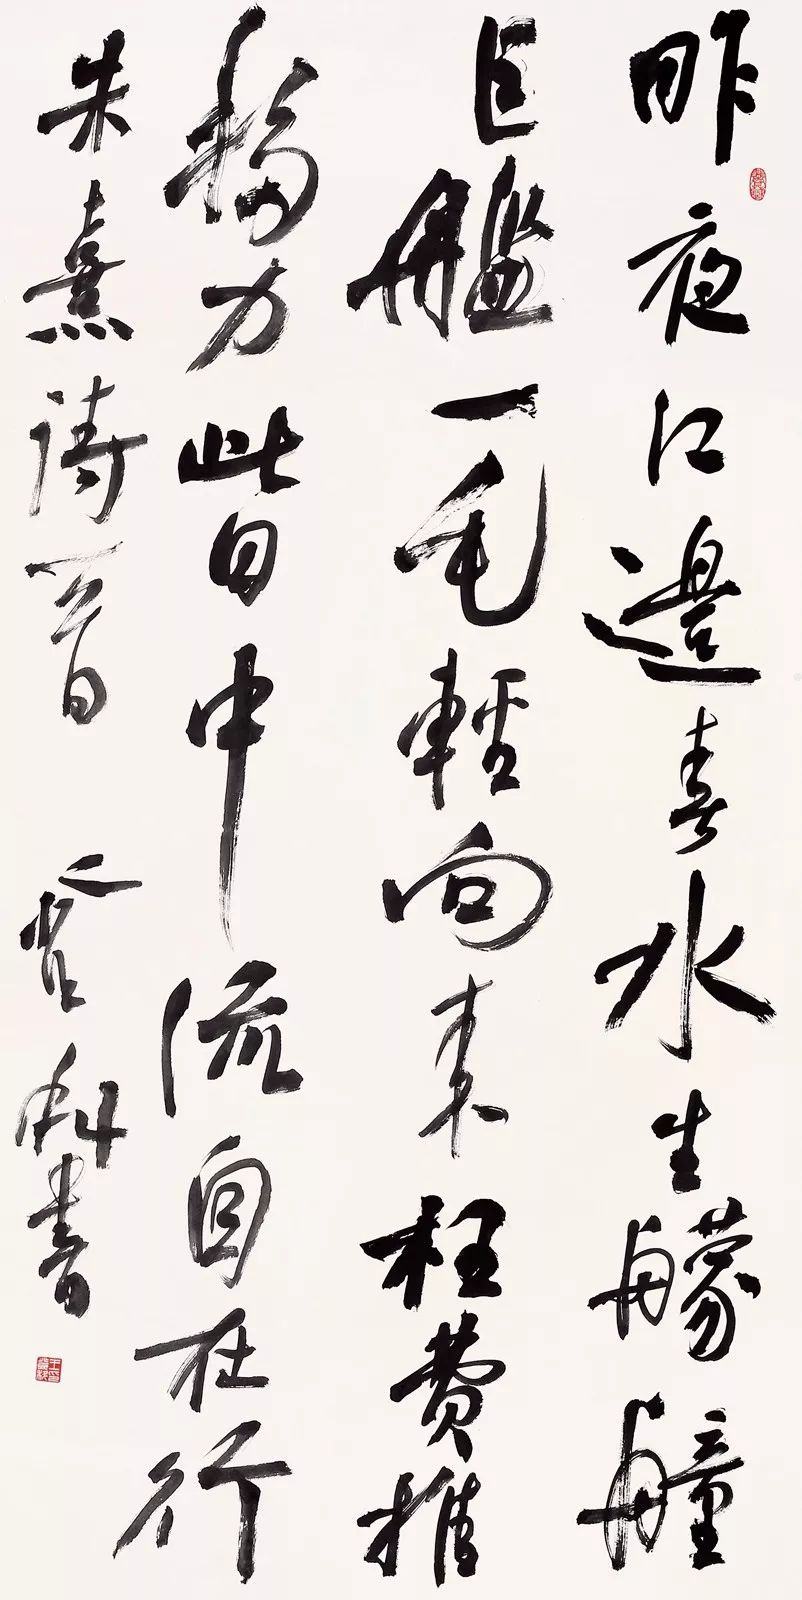 昨夜江邊春水生艨艟
巨艦一毛輕向來枉費推
移力此日中流自在行
朱熹詩一首 登科書